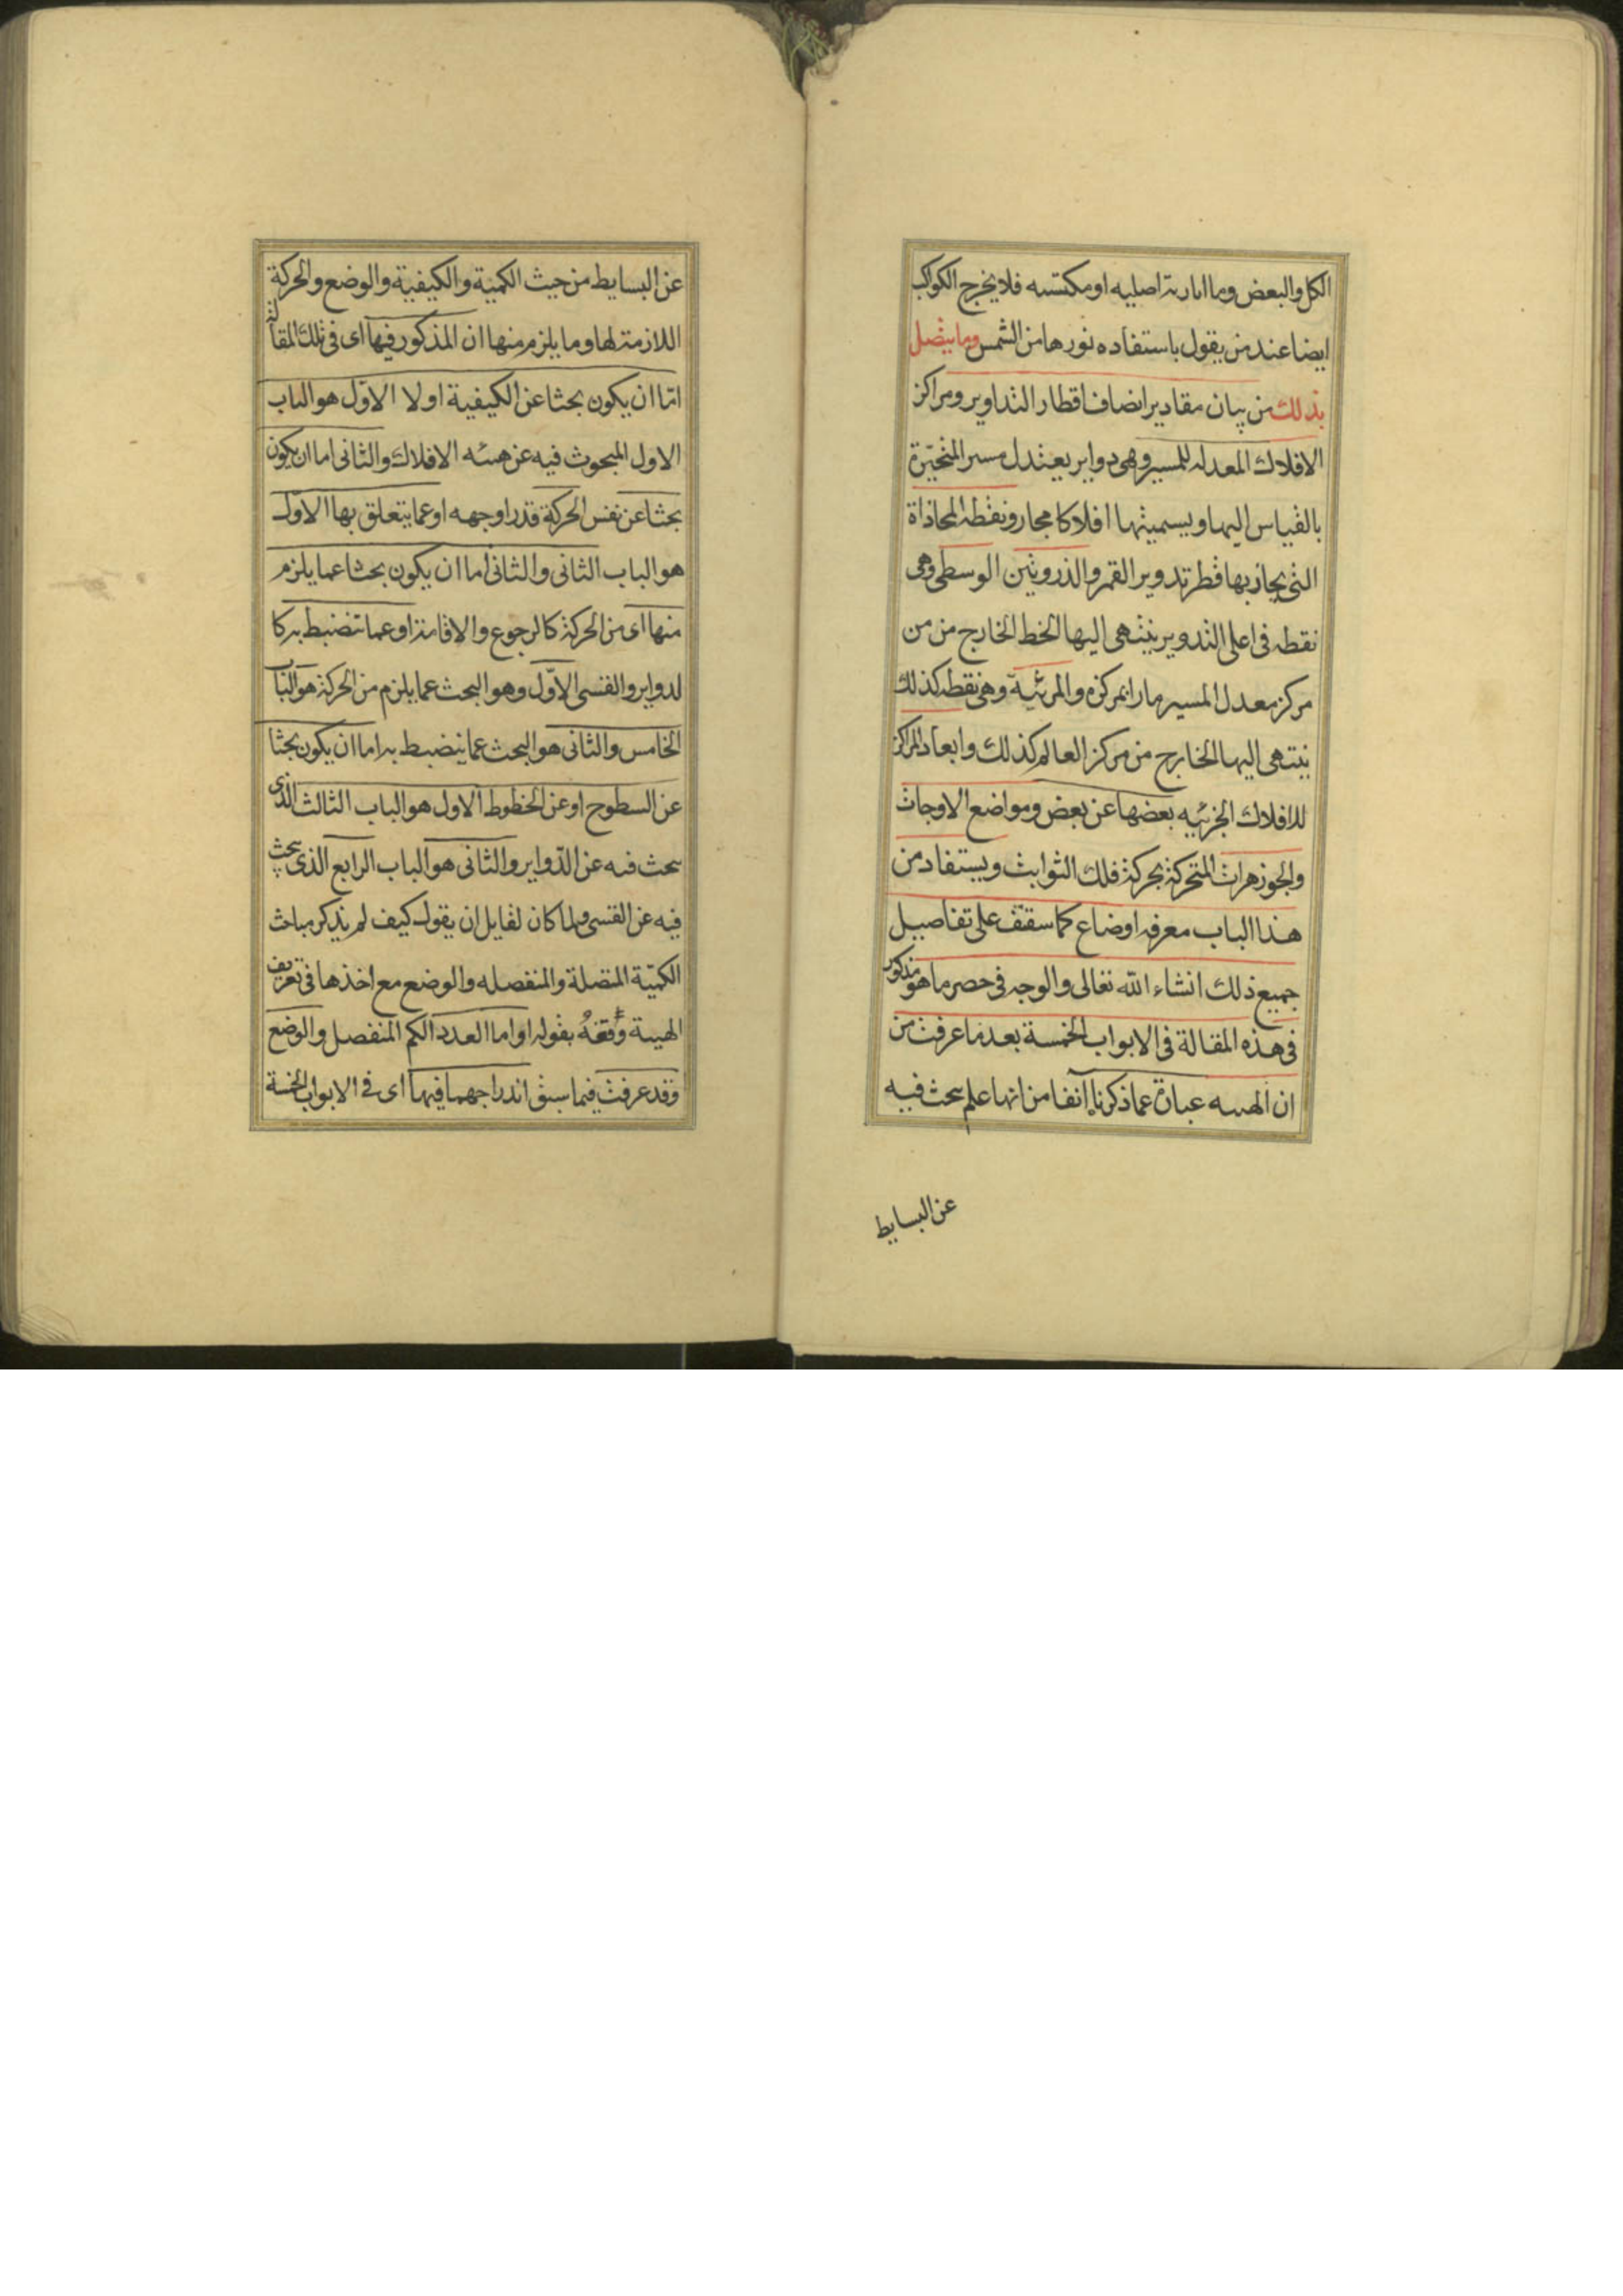 الكل والبعض وما انارته اصليه او مكتسبه فلا يخرج الكواكب
ايضا عند من يقول باستفاده نورها من الشمس وما يتصل
بذلك من بيان مقادير انصاف اقطار التداوير ومراكز
الافلاك المعدله للمسير وهى دواير يعتدل مسير المتحيّرة
بالقياس اليها ويسميتها افلاكا مجاز ونقطه المحاذاة
التى يحاذ بها قطر تدوير القمر والذروتين الوسطى وهى
نقطه فى اعلى التدوير ينتهى اليها الخط الخارج من من
مركز معدل المسير مارا بمركزه والمرئيّة وهى نقطه كذلك
ينتهى اليها الخارج من مركز العالم كذلك وابعاد المراكز
للافلاك الجزئيه بعضها عن بعض ومواضع الاوجات
والجوزهرات المتحركة بحركة فلك الثوابت ويستفاد من
هذا الباب معرفه اوضاع كما ستقف على تفاصيل
جميع ذلك انشاء الله تعالى والوجه فى حصر ما هو مذكور
فى هذه المقالة فى الابواب الخمسة بعد ما عرفت من
ان الهيىه عبارة عما ذكرناه آنفا من انها علم يبحث فيه
عن البسايط
عن البسايط من حيث الكمية والكيفية والوضع والحركة
اللازمة لها وما يلزم منها ان المذكور فيها اى فى تلك المقالة
امّا ان يكون بحثا عن الكيفية اولا الاوّل هو الباب
الاول المبحوث فيه عن هيئه الافلاك والثانى اما ان يكون
بحثا عن نفس الحركة قدرا وجهه او عما يتعلق بها الاوّل
هو الباب الثانى والثانى اما ان يكون بحثا عما يلزم
منها اى من الحركة كالرجوع والاقامة او عما تنضبط به كا
لدواير والقسى الاوّل وهو البحث عما يلزم من الحركة هو الباب
الخامس والثانى هو البحث عما ينضبط به اما ان يكون بحثا
عن السطوح او عن الخطوط الاول هو الباب الثالث الذى
يبحث فيه عن الدّواير والثانى هو الباب الرابع الذى يبحث
فيه عن القسى ولما كان لقايل ان يقول كيف لم يذكر مباحث
الكميّة المتصلة والمنفصله والوضع مع اخذها فى تعريف
الهيئة دفعهُ بقوله او اما العدد الكم المنفصل والوضع
وقد عرفت فيما سبق اندراجهما فيها اى فى الابواب الخمسة